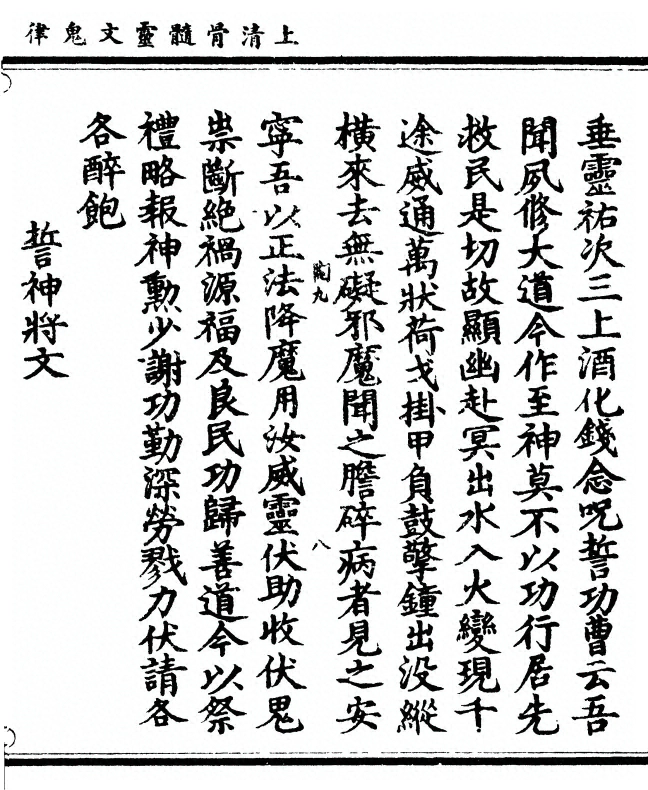 上清骨髓靈文鬼律
垂靈祐次三上酒化錢念呪誓功曹云吾
聞夙修大道今作至神莫不以功行居先
救民是切故顯幽赴冥出水入火變現千
途威通萬狀荷戈掛甲負鼓擎鐘出沒縱
橫來去無礙邪魔聞之膽碎病者見之安
陶九
八
寧吾以正法降魔用汝威靈伏助收伏鬼
祟斷絕禍源福及良民功歸善道今以祭
禮略報神勲少謝功勤深勞戮力伏請各
各醉飽
誓神將文